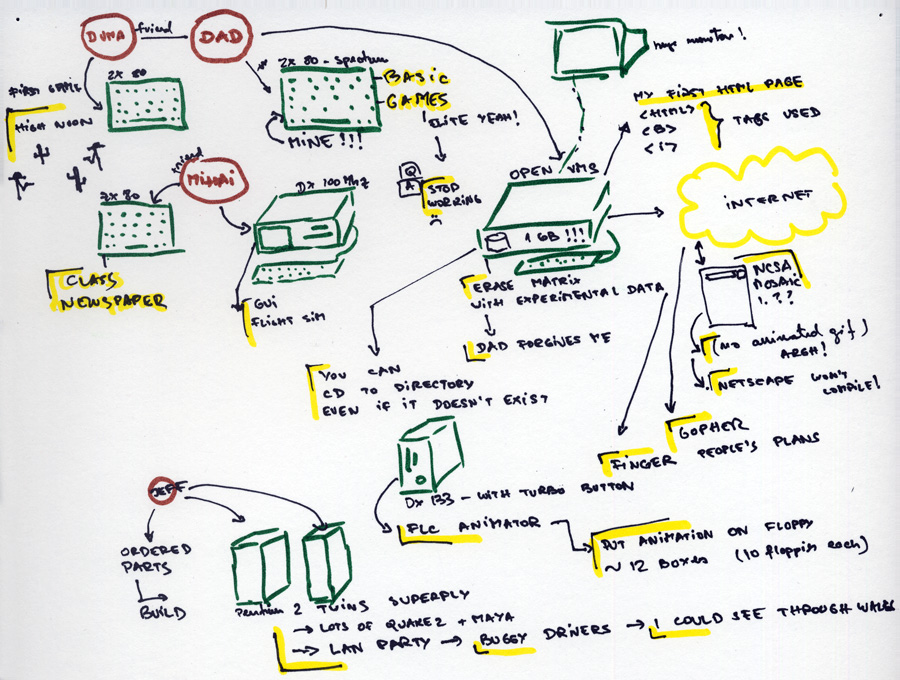 DUMA
friend
DAD
FIRST GAME
HIGH NOON
ZX 80
ZX 80 - spectrum
BASIC
GAMES
ELITE YEAH!
MINE!!!
Q
A
STOP
WORRING
:(
huge monitor!
MY FIRST HTML PAGE
<HTML>
<B>
<i>
TAGS USED
OPEN VMS
1 GB!!!
INTERNET
friend
MIHAI
ZX 80
CLASS
NEWSPAPER
DX 100 MHZ
GUI
FLIGHT SIM
ERASE MATRIX
WITH EXPERIMENTAL DATA
DAD FORGIVES ME
YOU CAN
CD TO DIRECTORY
EVEN IF IT DOESN'T EXIST
NCSA
MOSAIC
1.??
(NO animated gif)
ARGH!
NETSCAPE WON'T
COMPILE!
GOPHER
FINGER PEOPLE'S PLANS
DX 133 - WITH TURBO BUTTON
FLC ANIMATOR
PUT ANIMATION ON FLOPPY
~ 12 BOXES (10 floppies each)
JEFF
ORDERED
PARTS
BUILD
Pentium 2 TWINS SUPERPLY
LOTS OF QUAKE2 + MAYA
LAN PARTY → BUGGY DRIVERS → I COULD SEE THROUGH WALLS